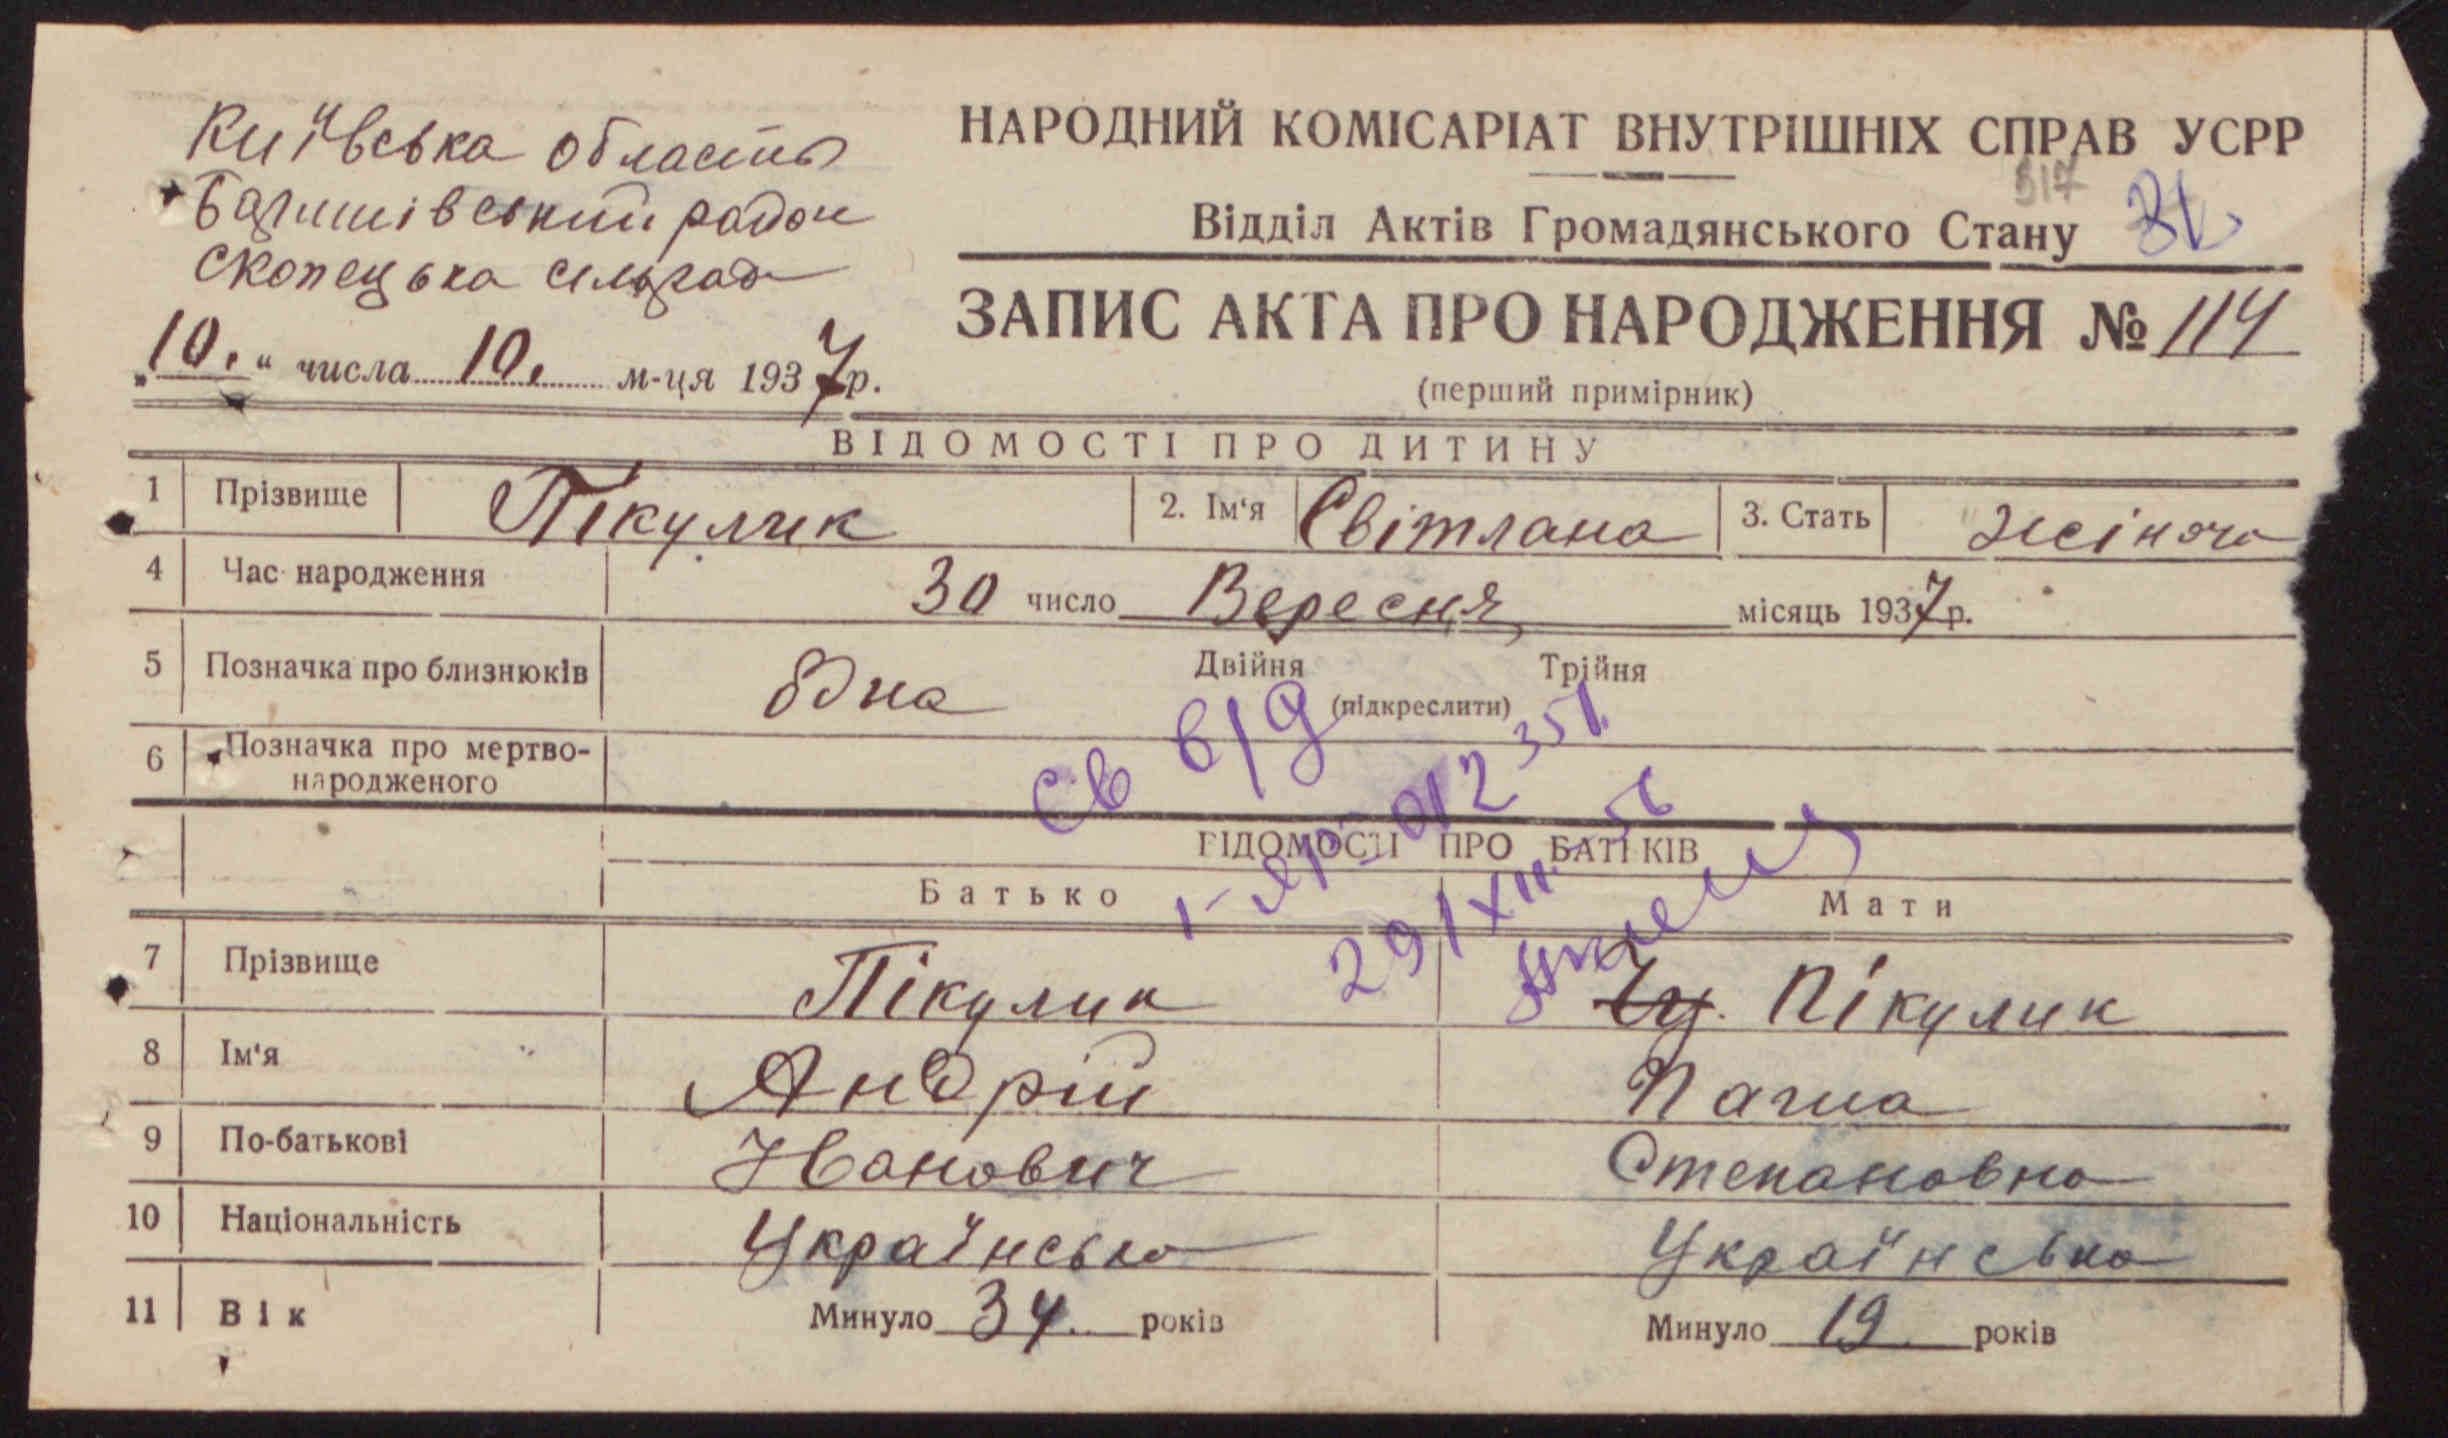 Київська область
НАРОДНИЙ КОМІСАРІАТ ВНУТРІШНІХ СПРАВ УСРР
317
Баришівський район
Відділ Актів Громадянського Стану
Скопецька сільрад
ЗАПИС АКТА ПРО НАРОДЖЕННЯ № 114
„10." числа 10. м-ця 1937 р.
(перший примірник)
ВІДОМОСТІ ПРО ДИТИНУ
1 Прізвище Пікулик 2. Ім'я Світлана 3. Стать жіноча
4 Час народження 30 число Вересня місяць 1937 р.
5 Позначка про близнюків Одна Двійня Трійня
(підкреслити)
6 Позначка про мертво-
народженого
Св 6/9
012351
29/XII-56
ВІДОМОСТІ ПРО БАТЬКІВ
Батько Мати
7 Прізвище Пікулик Пікулик
8 Ім'я Андрій Паша
9 По-батькові Іванович Степановна
10 Національність Українська Українська
11 Вік Минуло 34. років Минуло 19 років